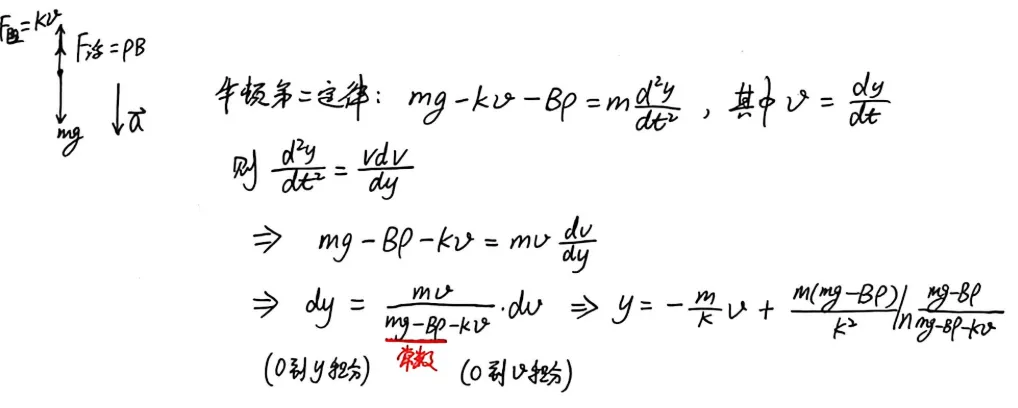 F阻=kv
F浮=ρB
mg
a⃗
牛顿第二定律: mg-kv-Bρ=m\frac{d²y}{dt²}, 其中 v=\frac{dy}{dt}
则 \frac{d²y}{dt²}=\frac{vdv}{dy}
⇒ mg-Bρ-kv=mv\frac{dv}{dy}
⇒ dy=\frac{mv}{mg-Bρ-kv}·dv ⇒ y=-\frac{m}{k}v+\frac{m(mg-Bρ)}{k²}ln\frac{mg-Bρ}{mg-Bρ-kv}
(0到y积分) 常数 (0到v积分)